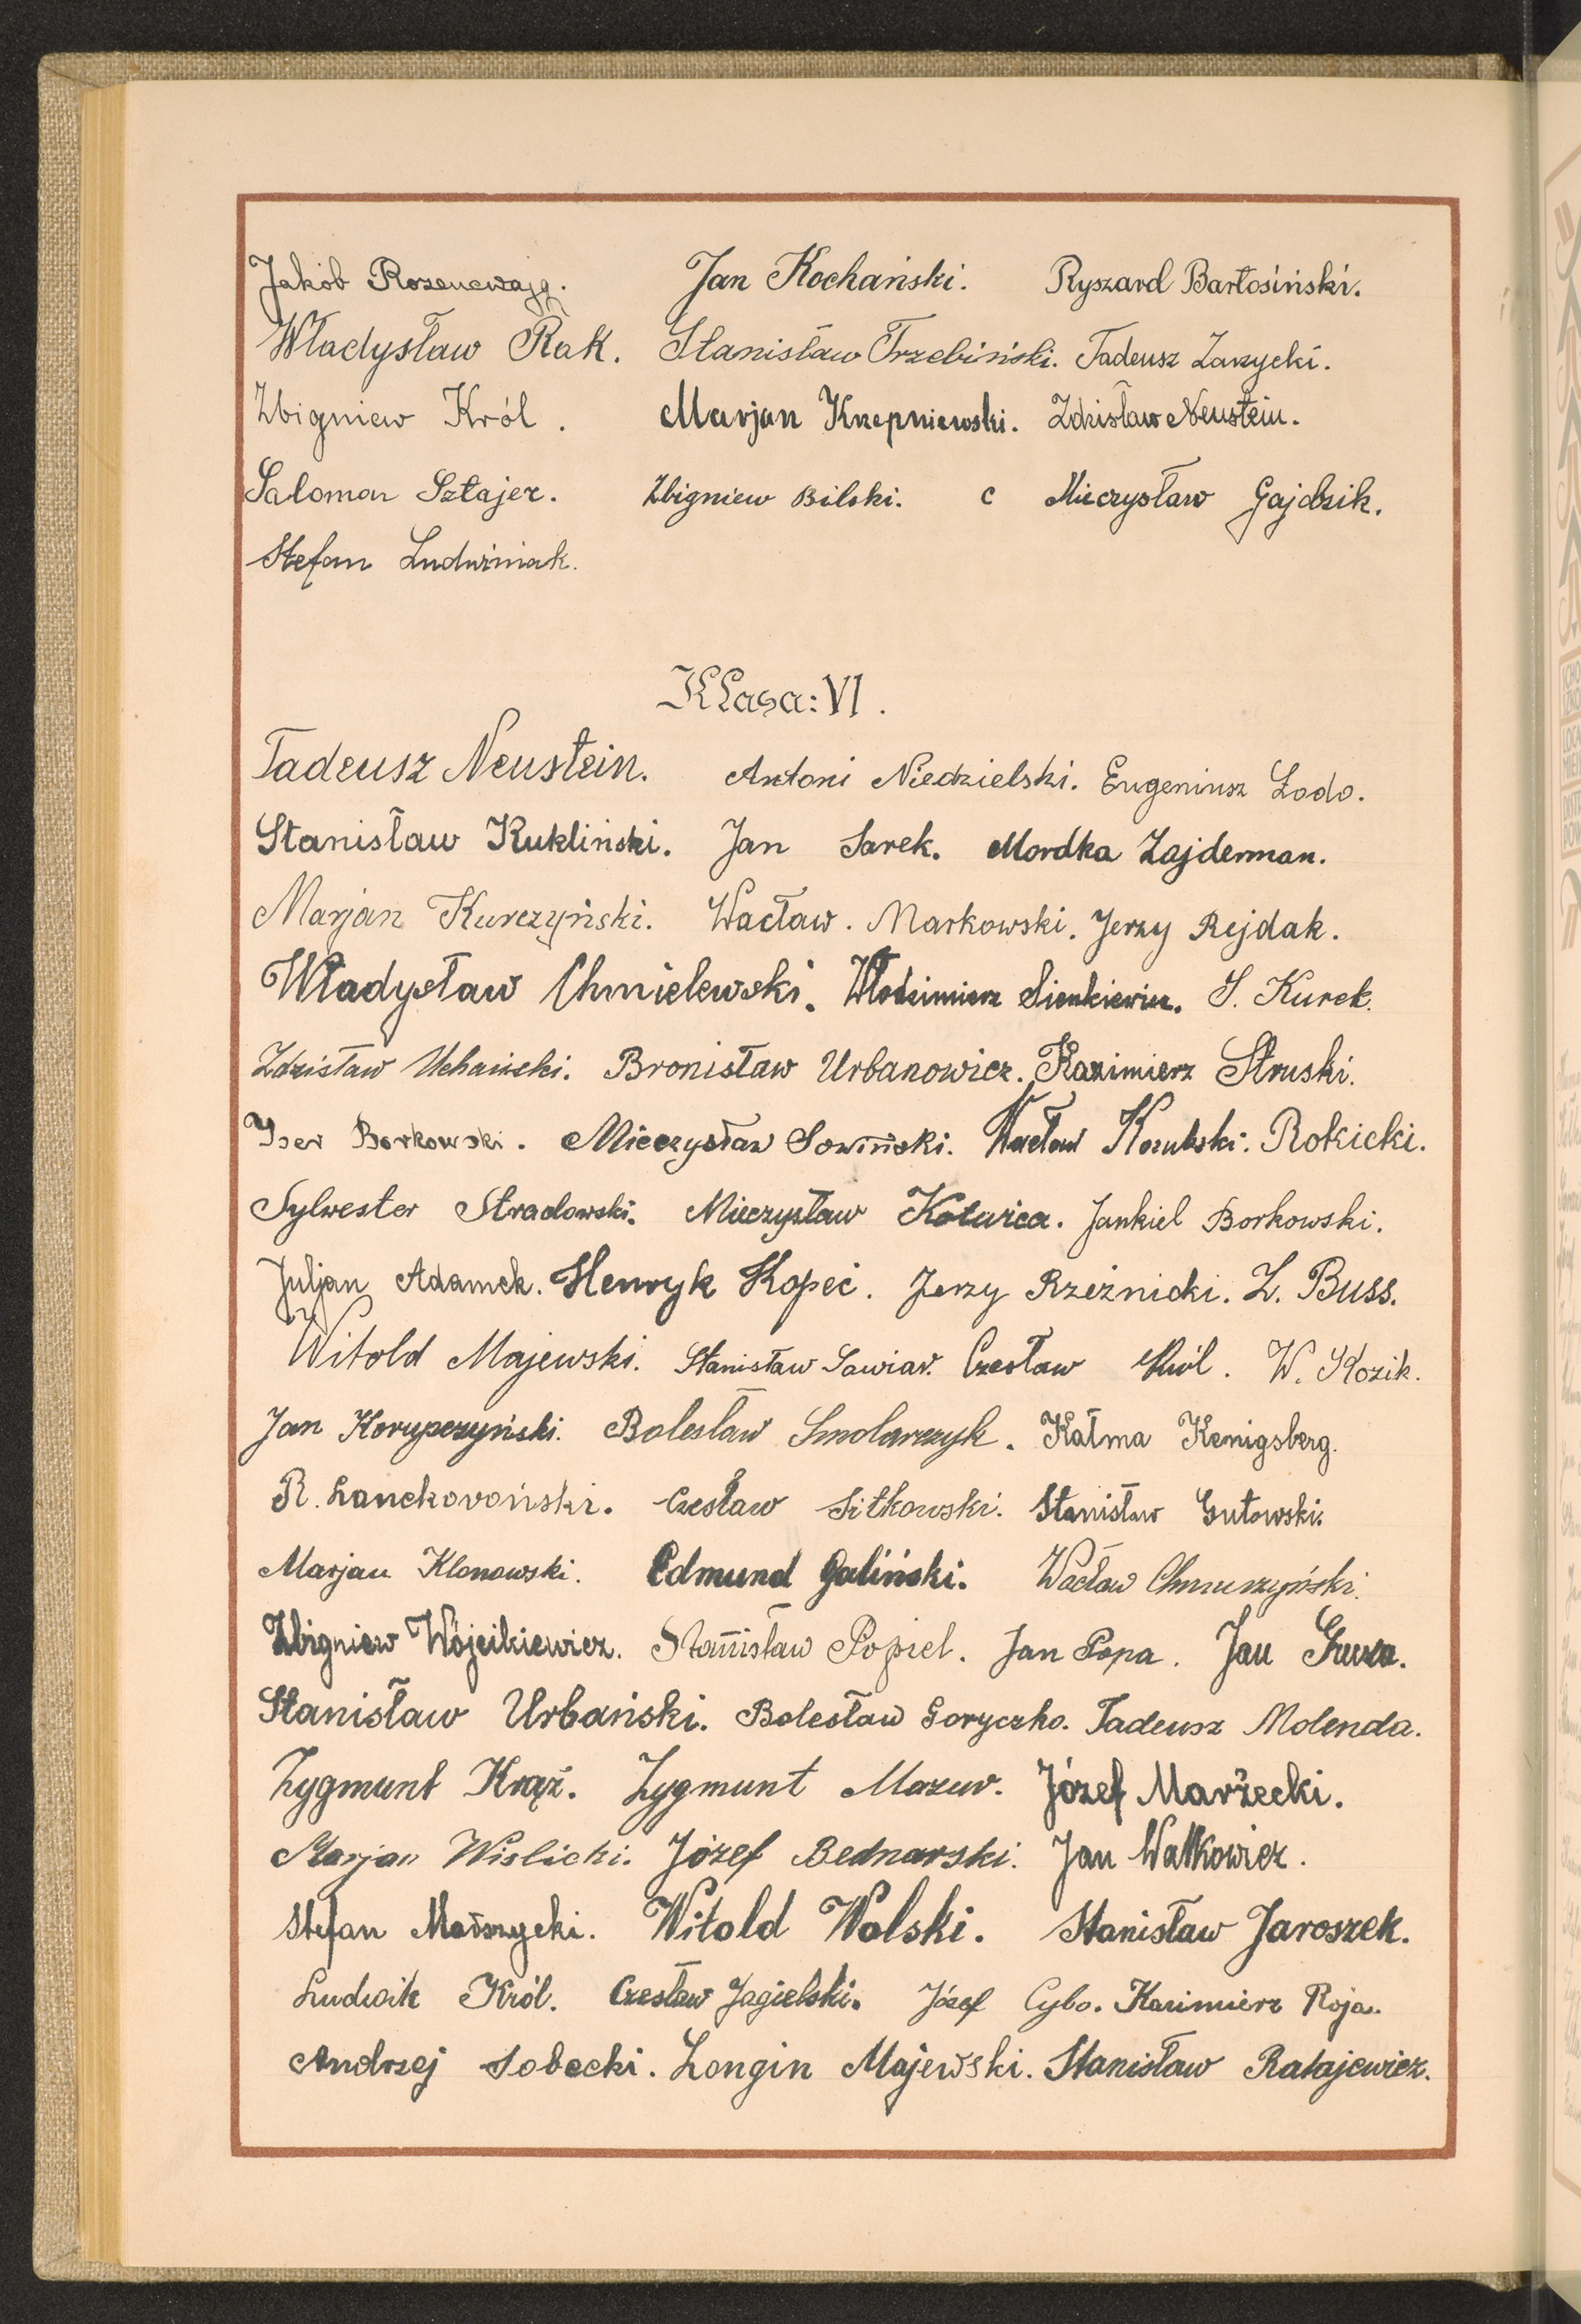 Jakób Rozencwajg. Jan Kochański. Ryszard Bartosiński.
Władysław Rak. Stanisław Trzebiński. Tadeusz Zarzycki.
Zbigniew Król. Marjan Krzepniewski. Zdzisław Neustein.
Salomon Sztajer. Zbigniew Bilski. c Mieczysław Gajdzik.
Stefan Ludwiniak.
Klasa: VI.
Tadeusz Neustein. Antoni Niedzielski. Eugeniusz Łodo.
Stanisław Kukliński. Jan Sarek. Mordka Zajderman.
Marjan Kurczyński. Wacław. Markowski. Jerzy Rejdak.
Władysław Chmielewski. Włodzimierz Sienkiewicz. S. Kurek.
Zdzisław Uchański. Bronisław Urbanowicz. Kazimierz Struski.
Iser Borkowski. Mieczysław Sowiński. Wacław Kozubski. Rokicki.
Sylwester Stradowski. Mieczysław Kotwica. Jankiel Borkowski.
Juljan Adamek. Henryk Kopeć. Jerzy Rzeźnicki. Z. Buss.
Witold Majewski. Stanisław Sawiar. Czesław Król. W. Kozik.
Jan Korupczyński. Bolesław Smolarczyk. Kałma Kenigsberg.
R. Lanckoroński. Czesław Sitkowski. Stanisław Gutowski.
Marjan Klonowski. Edmund Galiński. Wacław
Zbigniew Wójcikiewicz. Stanisław Popiel. Jan Popa. Jan Guza.
Stanisław Urbański. Bolesław Goryczko. Tadeusz Molenda.
Zygmunt Krąż. Zygmunt Mazur. Józef Marżecki.
Marjan Wislicki. Józef Bednarski. Jan Watkowicz.
Stefan Witold Wolski. Stanisław Jaroszek.
Ludwik Król. Czesław Jagielski. Józef Cybo. Kazimierz Roja.
Andrzej Sobecki. Longin Majewski. Stanisław Ratajewicz.